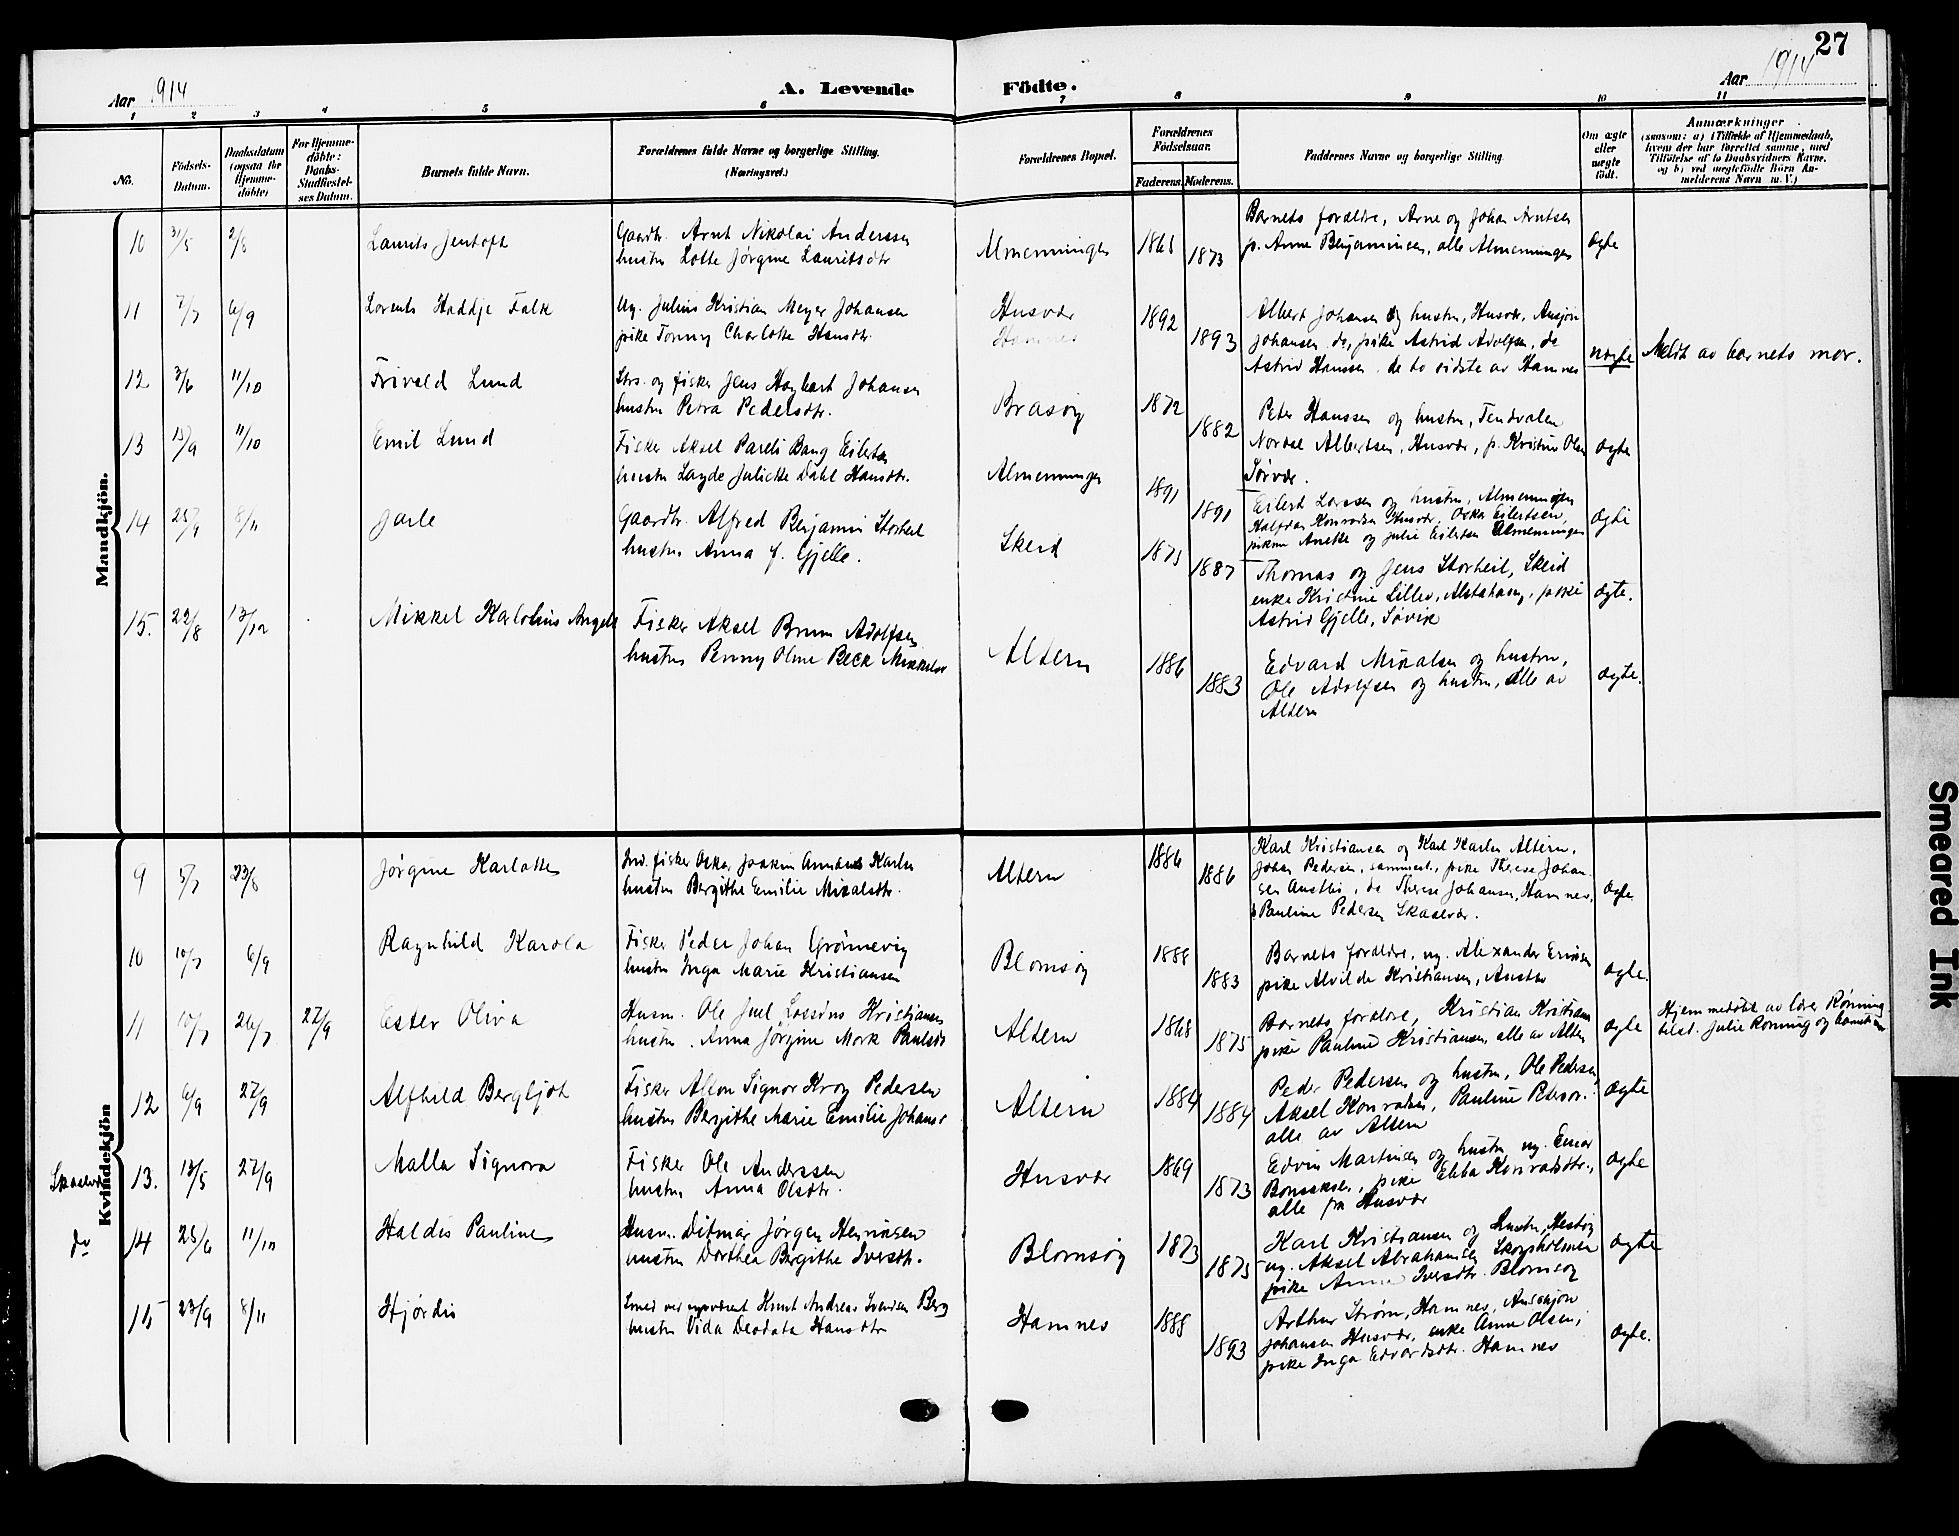 27
Aar 1914
A. Levende
Födte.
Aar 1914
1 2 3 4 5 6 7 8 9 10 11
No.
Födsels-
Datum.
Daabsdatum
(ogsaa for
Hjemme-
döbte)
For Hjemme-
döbte:
Daabs-
Stadfæstel-
ses Datum.
Barnets fulde Navn.
Forældrenes fulde Navne og borgerlige Stilling.
(Næringsvei.)
Forældrenes Bopæl.
Forældrenes
Födselsaar.
Faderens. Moderens.
Faddernes Navne og borgerlige Stilling.
Om ægte
eller
uægte
födt.
Anmærkninger
(saasom: a) i Tilfælde af Hjemmedaab,
hvem der har forrettet samme, med
Tilföielse af to Daabsvidners Navne,
og b) ved uægtefödte Börn An-
melderens Navn m. V.)
Mandkjön.
10 31/5 2/8 Laurits Jentoft
Gaardbr. Arnt Nikolai Anderssen
hustru Lotte Jørgine Lauritsdtr
Almenningen 1865 1873
Barnets forældre, Arne og Johan Arntsen
p. Anna Benjaminsen, alle Almenningen
ægte
11 7/7 6/9 Lorents Haddje Falk
Ug. Julius Kristian Meyer Johansen
pike Tonny Charlotte Hansdtr.
Husvær
Hamnes
1892 1893
Albert Johansen og hustru, Husvær, Ansjön
Johansen do, pike Astrid Adolfsen, do
Astrid Hanssen. de to sidste av Hamnes
uægte
Meldt av barnets mor.
12 3/6 11/10 Frivald Lund
Strs. og fisker Jens Hagbart Johansen
hustru Petra Pedersdtr.
Brasøy 1872 1882
Peter Hanssen og hustru, Tendvalen
Nordal Albertsen, Husvær, p. Kristine Olsen
Sörvær.
ægte
13 13/9 11/10 Emil Lund
Fisker Aksel Pareli Bang Eilertsen
hustru Layde Juliette Dahl Hansdtr.
Almenningen 1891 1891
Eilert Larssen og hustru, Almenningen
Halfdan Konradsen Husvær, Oskar Eilertsen,
pikerne Anette og Julie Eilertsen Almenningen
ægte
14 25/9 8/11 Jarle
Gaardbr. Alfred Benjamin Storheil
hustru Anna f. Gjelle.
Skeid 1875 1887
Thomas og Jens Storheil, Skeid
enke Kristine Lillev, Alstahaug, pike
Astrid Gjelle, Søvik
ægte.
15. 22/8 13/12 Mikkel Karlotius Angell
Fisker Aksel Brun Adolfsen
hustru Penny Oline Beck Mikkelsdr
Altern 1886 1883
Edvard Mikalsen og hustru,
Ole Adolfsen og hustru, alle av
Altern
ægte.
Kvindekjön
9 5/7 23/8 Jørgine Karlotte
Ind. fisker Oskar Joakim Annanias Karlsen
hustru Bergithe Emilie Mikalsdtr.
Altern 1886 1886
Karl Kristiansen og Karl Karlsen Altern,
Johan Pedersen, sammest., pike Therese Johan-
sen Austbø, do Therese Johansen, Hamnes,
p Pauline Pedersen Skaalvær.
ægte
10 10/7 6/9 Ragnhild Karola
Fisker Peder Johan Grönnevig
hustru Inga Marie Kristiansen
Blomsøy 1888 1883
Barnets forældre, ug. Alexander Eriksen
pike Alvilde Kristiansen, Austbø
ægte
11 10/7 26/7 27/9 Ester Oliva
Husm. Ole Juel Lossius Kristiansen
hustru. Anna Jørgine Mork Paulsdr
Altern 1868 1875
Barnets forældre, Kristian Kristiansen
pike Pauline Kristiansen, alle av Altern
ægte
Hjemmedøbt av lærer Rönning
tilst. Julie Rönning og barnets mor
12 6/9 27/9 Alfhild Bergljot
Fisker Alton Signor Krog Pedersen
hustru Bergithe Marie Emilie Johansr
Altern 1884 1884
Peder Pedersen og hustru, Ole Pedersen,
Aksel Konradsen, Pauline Peterson.
alle av Altern
ægte
Skaalvær 13. 13/5 27/9 Malla Signora
Fisker Ole Anderssen
hustru Anna Olsdtr.
Husvær 1869 1873
Edvin Martinsen og hustru, ug. Einar
Bonsaksen, pike Ebba Konradsdtr.,
alle fra Husvær
ægte
do 14 25/6 11/10 Haldis Pauline
Husm. Ditmar Jørgen Henriksen
hustru Dorthea Bergithe Iversdtr.
Blomsøy 1873 1875
Karl Kristiansen og hustru, Hestøy
ug. Aksel Abrahamsen Skogsholmen
pike Anna Iversdtr. Blomsøy
ægte
15 23/9 8/11 Hjørdis
Smed ved Knut Andreas Svendsen Berg
hustru Vida Deodata Hansdtr
Hamnes 1888 1893
Arthur Strøm, Hamnes, Ansgjön
Johansen Husvær, enke Anna Olsen,
pike Inga Edvardsdtr. Hamnes
ægte.
Smeared Ink